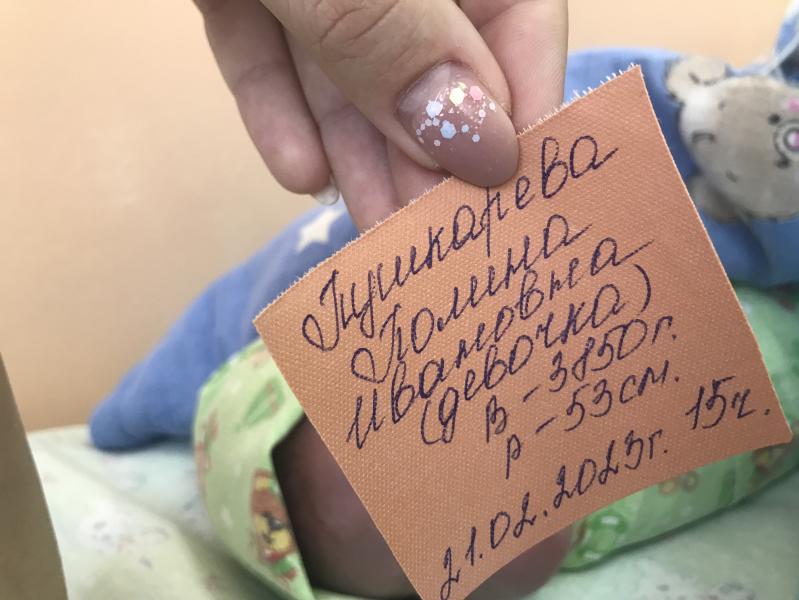 Пушкарева
Полина
Ивановна
(девочка)
В - 3850 г.
р - 53 см.
21.02.2023г. 15ч.